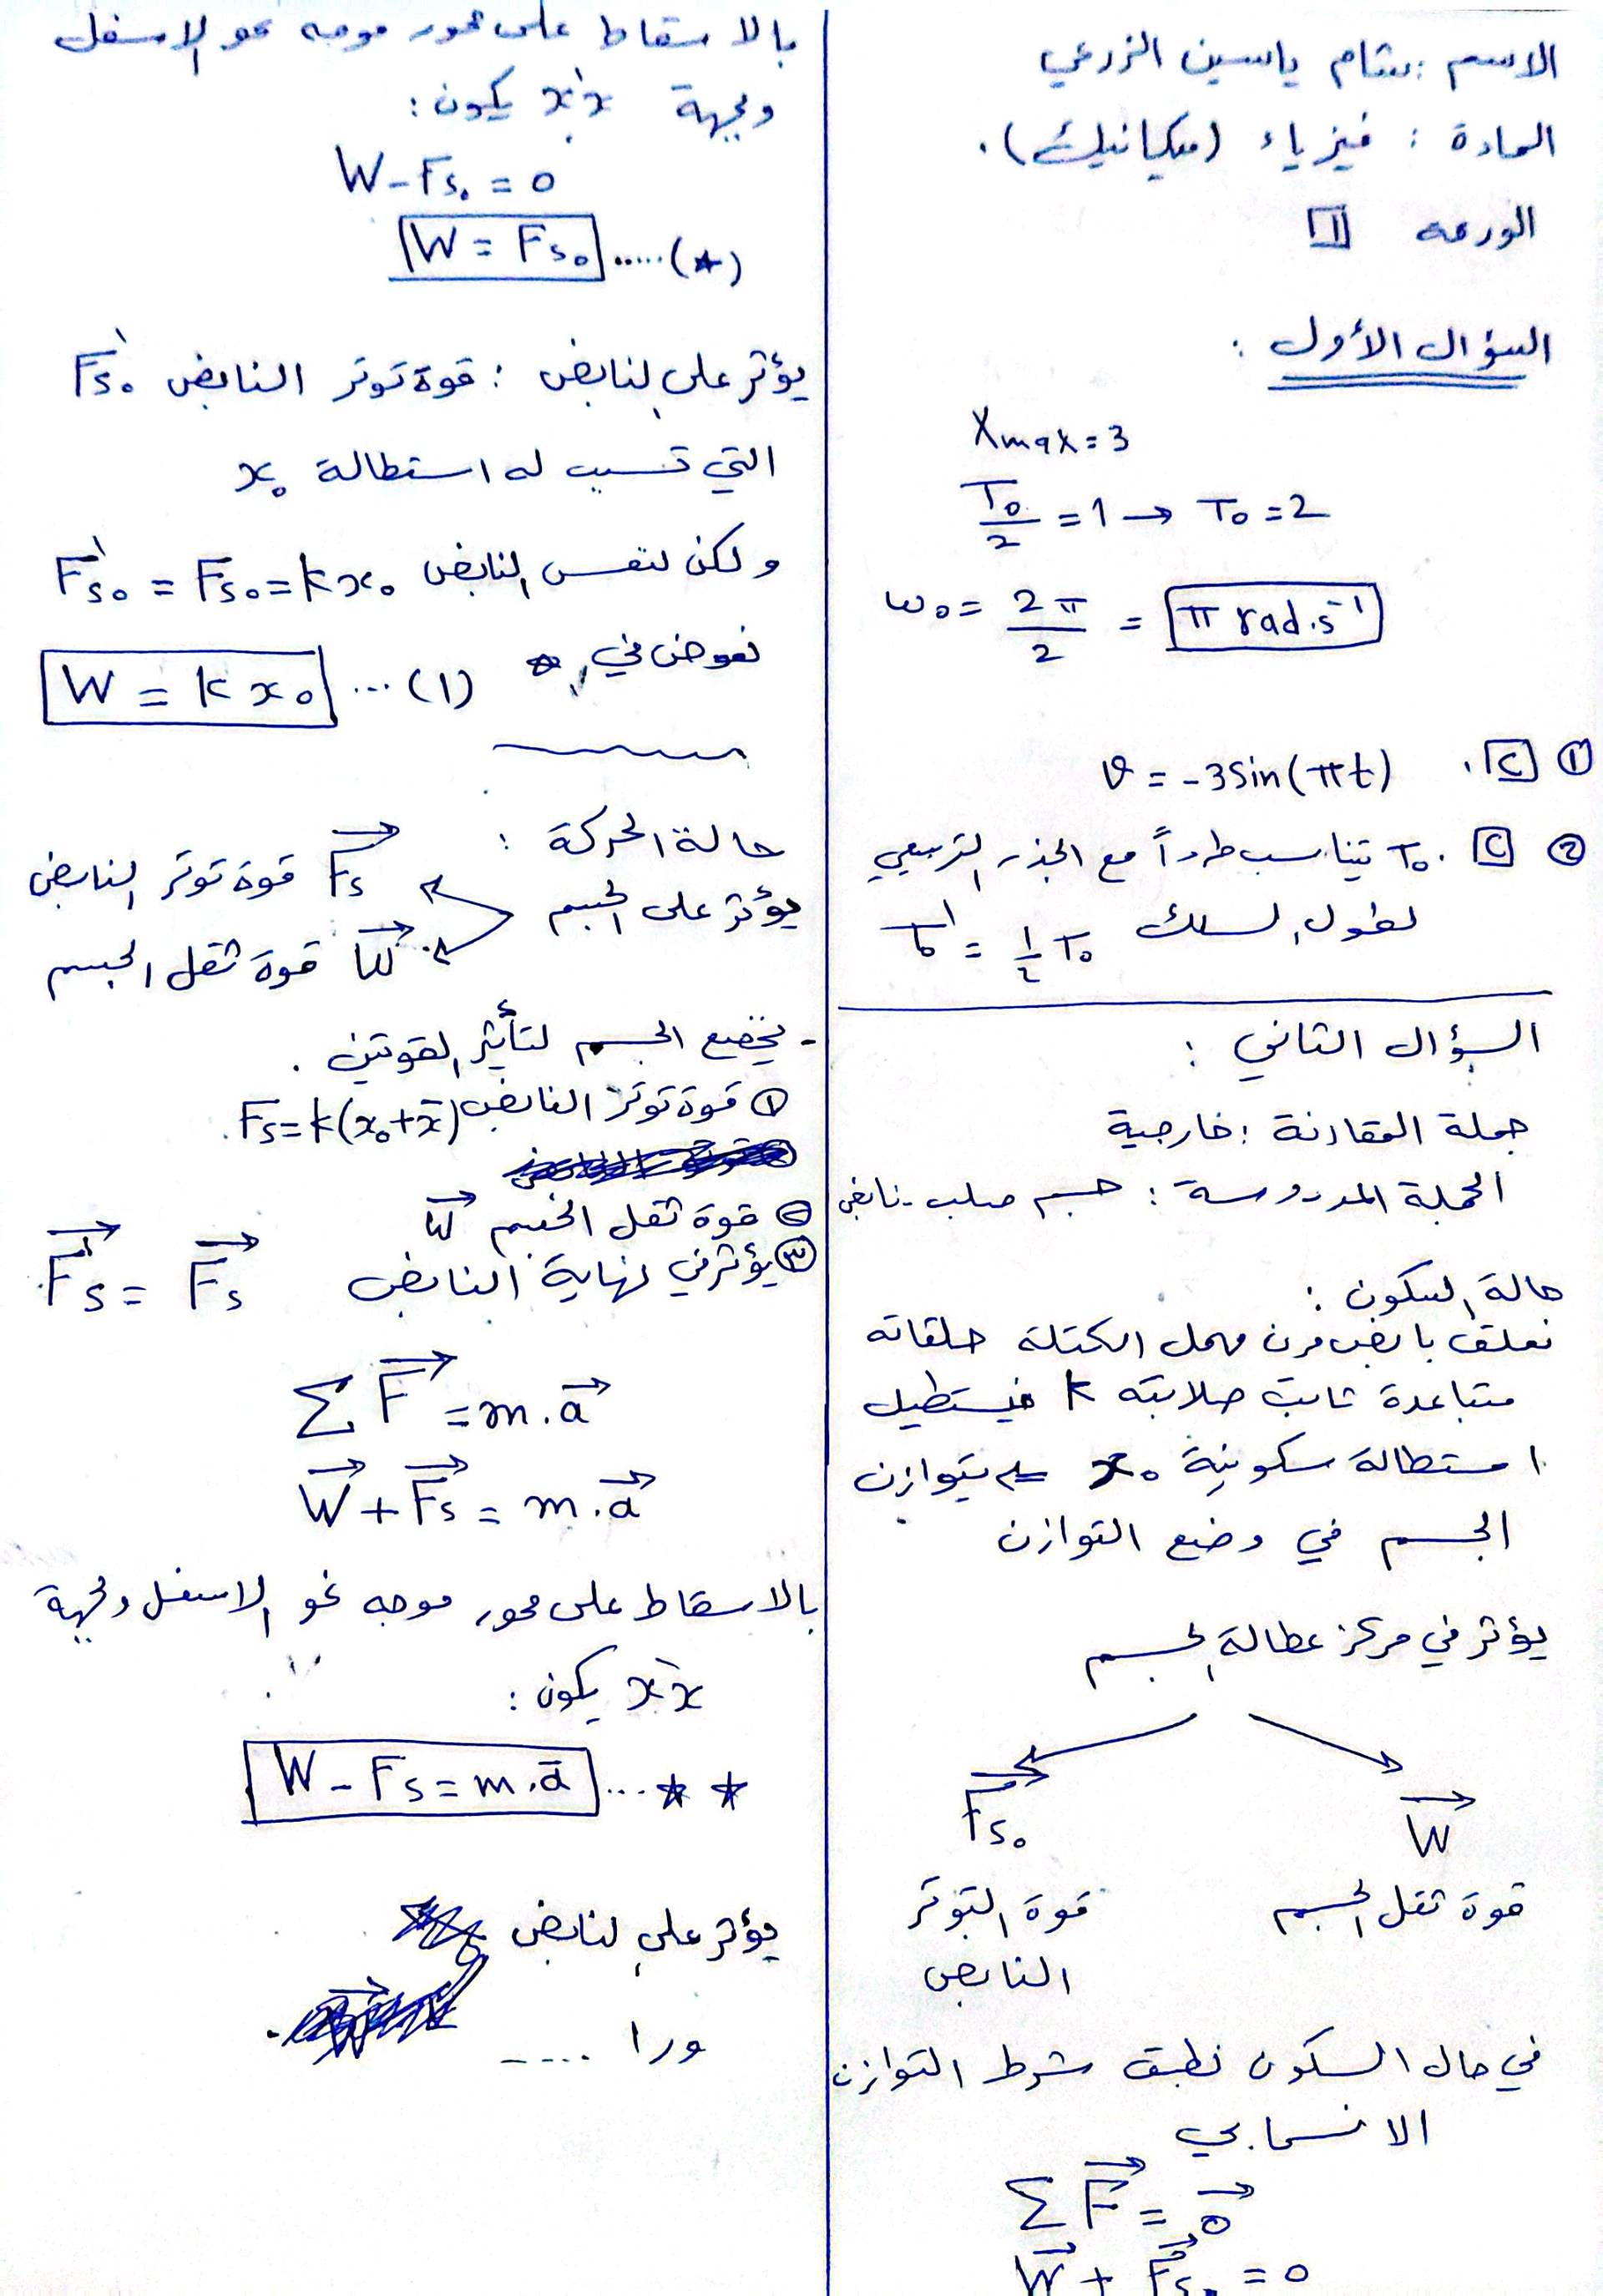 الاسم : بشام ياسين الزرعي
المادة : فيزياء (ميكانيك).
الورقة 1
السؤال الأول :
Xmax = 3
T₀/2 = 1 → T₀ = 2
ω₀ = 2π/2 = π rad.s⁻¹
① C. v = -3 sin(πt)
② C. T₀ تتناسب طرداً مع الجذر التربيعي
لطول السلك T₀' = 1/2 T₀
السؤال الثاني :
جملة المقارنة : خارجية
الجملة المدروسة : جسم صلب - نابض
حالة السكون :
نعلق بابض مرن مهمل الكتلة حلقاته
متباعدة ثابت صلابته k فيستطيل
استطالة سكونية x₀ يتوازن
الجسم في وضع التوازن
يؤثر في مركز عطالة الجسم
F⃗s₀ W⃗
قوة التوتر قوة ثقل الجسم
النابض
في حال السكون نطبق شرط التوازن
الانسحابي
∑F⃗ = 0⃗
W⃗ + F⃗s₀ = 0
بالاسقاط على محور موجه نحو الاسفل
وبجهة x'x يكون :
W - Fs₀ = 0
W = Fs₀ .....(*)
يؤثر على النابض : قوة توتر النابض F's₀
التي تسبب له استطالة x₀
ولكن لنفس النابض F's₀ = Fs₀ = kx₀
نعوض في *
W = k x₀ ...(1)
حالة الحركة :
يؤثر على الجسم
F⃗s قوة توتر النابض
W⃗ قوة ثقل الجسم
- يخضع الجسم لتأثير القوتين .
① قوة توتر النابض Fs = k(x₀ + x̄).
② قوة ثقل الجسم W⃗
③ يؤثر في نهاية النابض F⃗'s = F⃗s
∑F⃗ = m.a⃗
W⃗ + F⃗s = m.a⃗
بالاسقاط على محور موجه نحو الاسفل وبجهة
x'x يكون :
W - Fs = m.ā ...**
يؤثر على النابض
ورا .....